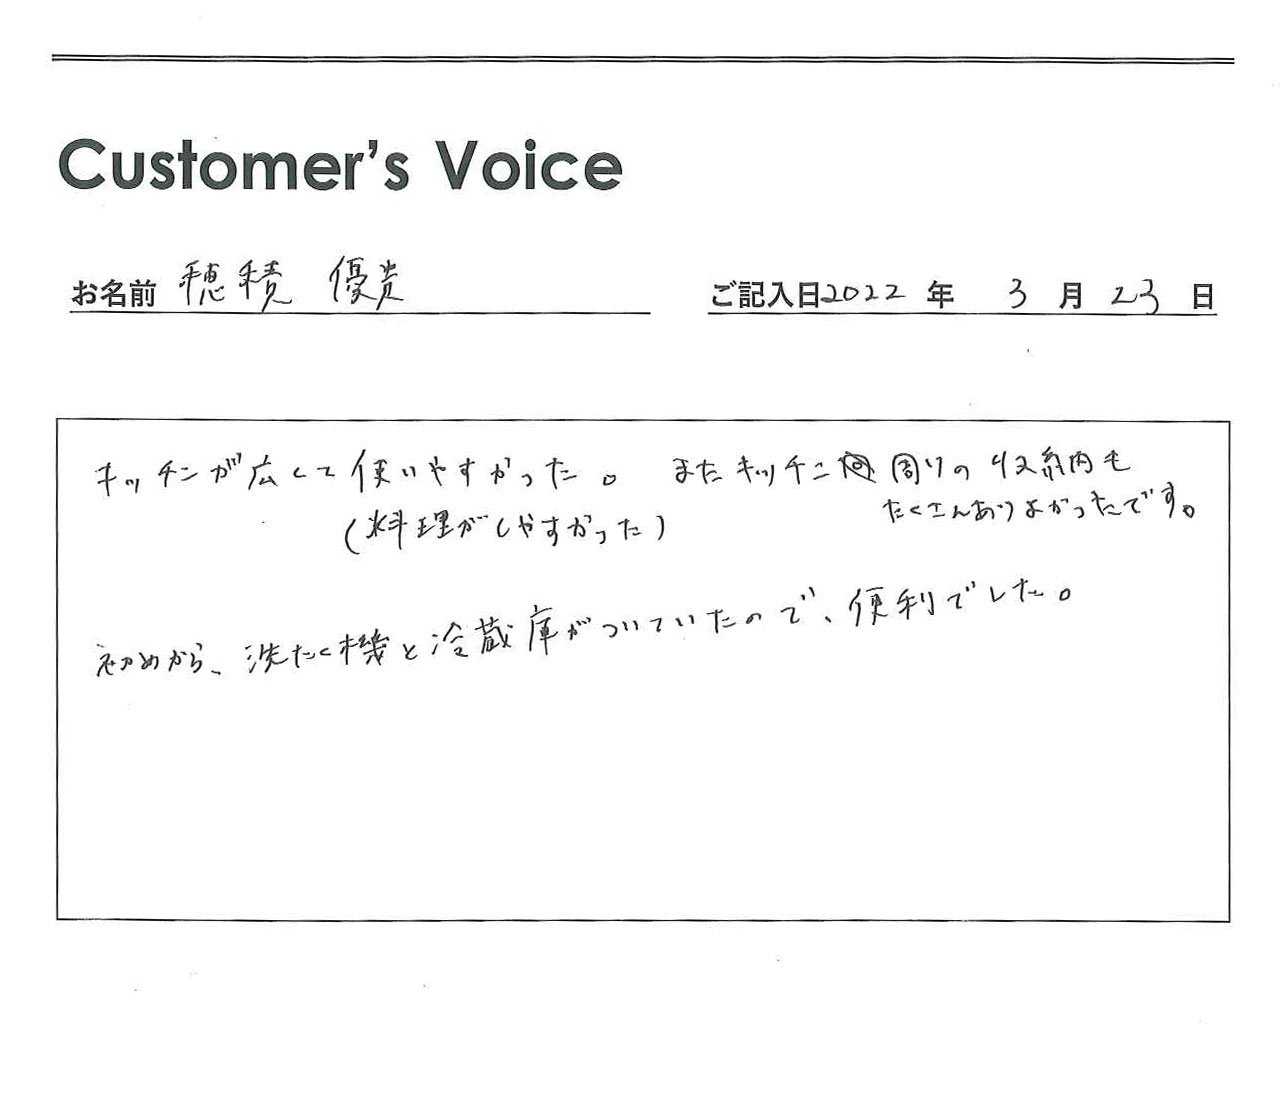 Customer's Voice
お名前 穂積 優貴
ご記入日2022年 3月 23日
キッチンが広くて使いやすかった。 またキッチン周りの収納も
たくさんありよかったです。
(料理がしやすかった)
初めから、洗たく機と冷蔵庫がついていたので、便利でした。